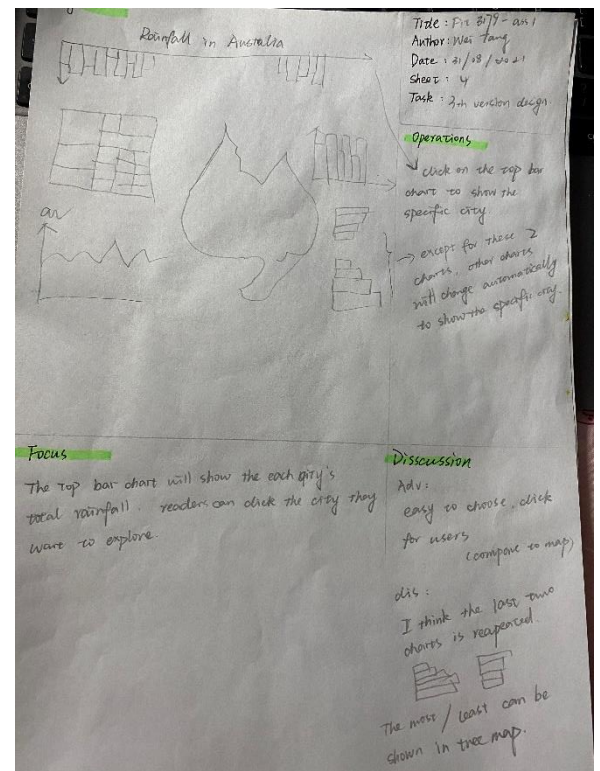 Rainfall in Australia
Title : Fit 3179 - ass 1
Author : Wei Tang
Date : 31/08/2021
Sheet : 4
Task : 3th version design
Operations
click on the top bar
chart to show the
specific city.
except for these 2
charts, other charts
will change automatically
to show the specific city.
Focus
The top bar chart will show the each city's
total rainfall. readers can click the city they
want to explore.
Disscussion
Adv :
easy to choose, click
for users
(compare to map)
dis :
I think the last two
charts is reapeaced.
The most / least can be
shown in tree map.